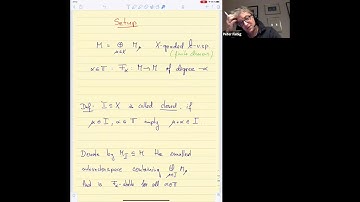 Setup
M = ⊕ M_μ X-graded k-v.sp
μ∈X (finite dimens.)
α∈Π : F_α : M→M of degree -α
Def: I ⊆ X is called closed, if
μ∈I, α∈Π imply μ+α∈I
Denote by M_I ⊆ M the smallest
subvectorspace containing ⊕ M_μ
μ∈I
that is F_α-stable for all α∈Π
Peter Fiebig